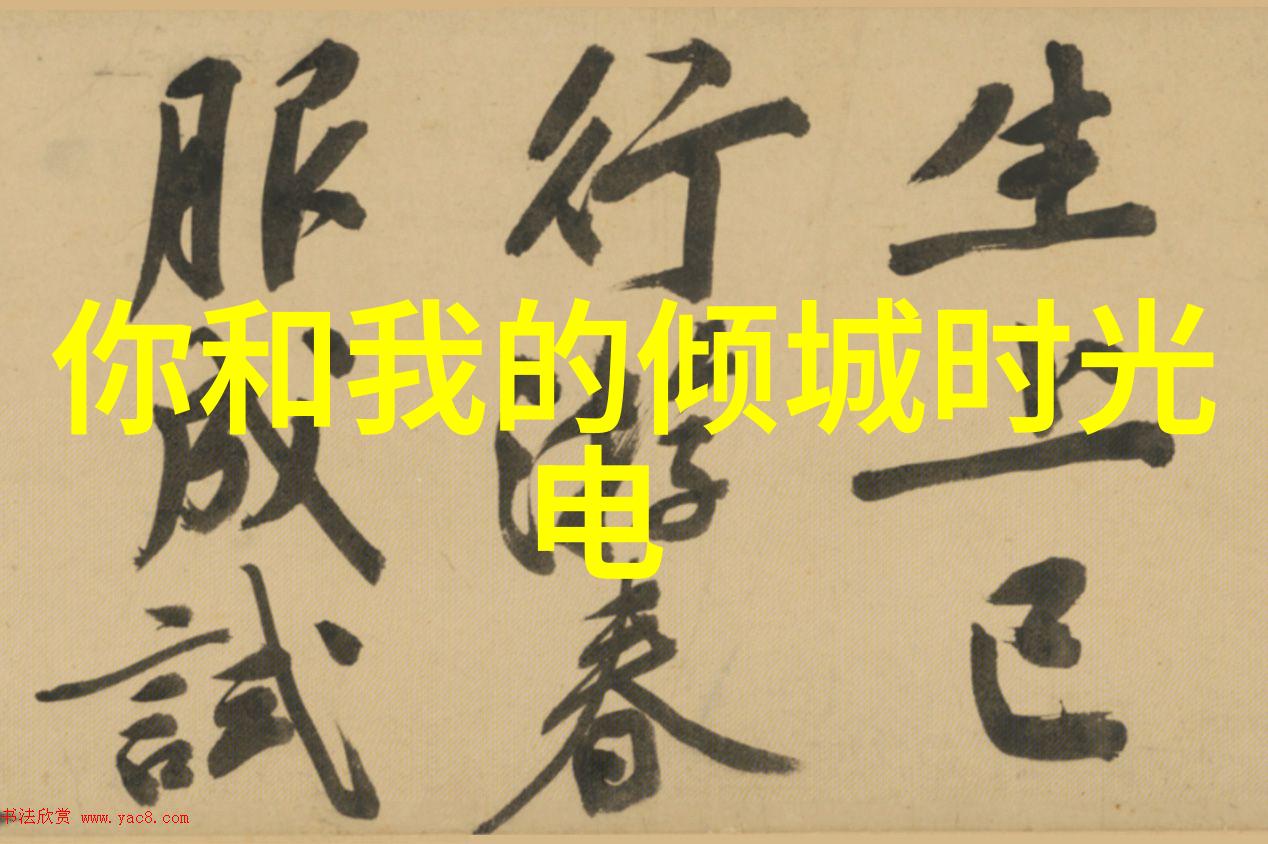 生 已
行游春
服成試
你和我的倾城时光
电
书法欣赏 www.yac8.com